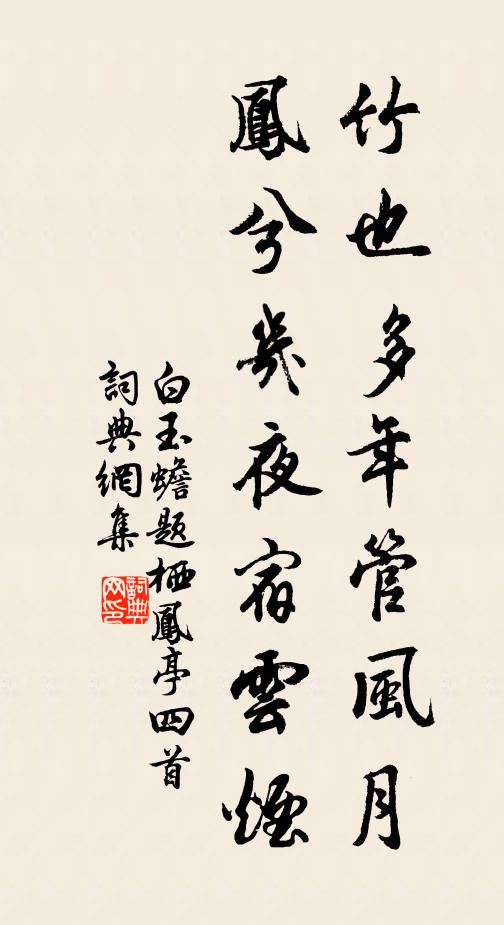 竹也多年管風月
鳳兮幾夜宿雲煙
白玉蟾題栖鳳亭四首
詞典網集
詞典網印